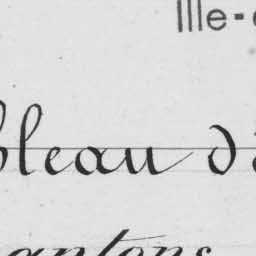 Ille-
bleau d
antons